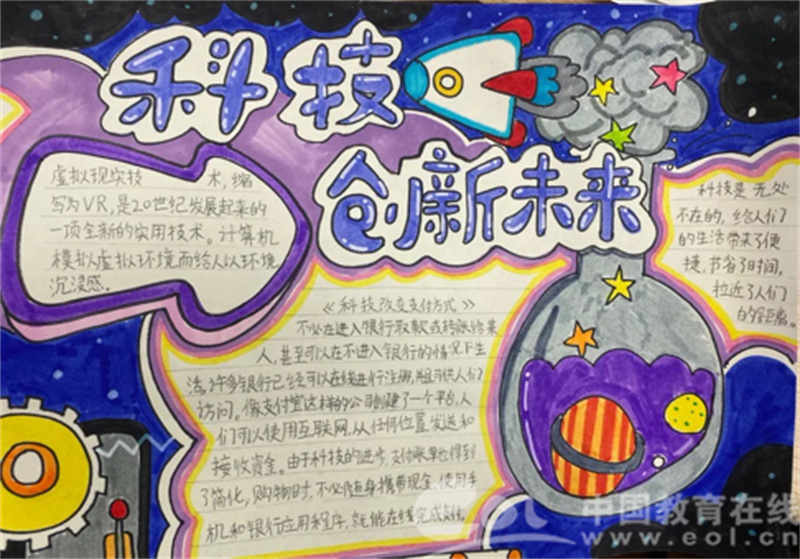 科技
创新未来
虚拟现实技 术,缩
写为VR,是20世纪发展起来的
一项全新的实用技术。计算机
模拟虚拟环境而给人以环境
沉浸感。
《科技改变支付方式》
不必在进入银行取款或转账给某
人,甚至可以在不进入银行的情况下生
活。许多银行已经可以在线进行注册,并且可供人们
访问。像支付宝这样的公司创建了一个平台,人
们可以使用互联网,从任何位置发送和
接收资金。由于科技的进步,支付账单也得到
了简化,购物时,不必随身携带现金,使用手
机和银行应用程序,就能在线完成支付。
科技是无处
不在的,给人们
的生活带来了便
捷,节省了时间,
拉近了人们
的距离。
中国教育在线
www.eol.cn